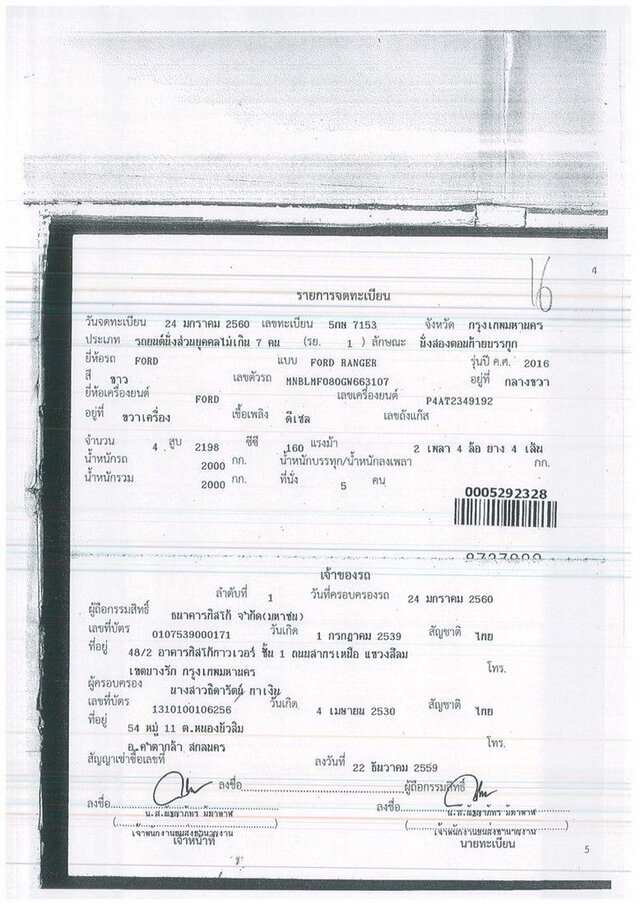 16
4
รายการจดทะเบียน
วันจดทะเบียน 24 มกราคม 2560 เลขทะเบียน 5กษ 7153 จังหวัด กรุงเทพมหานคร
ประเภท รถยนต์นั่งส่วนบุคคลไม่เกิน 7 คน (รย. 1 ) ลักษณะ นั่งสองตอนท้ายบรรทุก
ยี่ห้อรถ FORD แบบ FORD RANGER รุ่นปี ค.ศ. 2016
สี ขาว เลขตัวรถ MNBLMF080GW663107 อยู่ที่ กลางขวา
ยี่ห้อเครื่องยนต์ FORD เลขเครื่องยนต์ P4AT2349192
อยู่ที่ ขวาเครื่อง เชื้อเพลิง ดีเซล เลขถังแก๊ส
จำนวน 4 สูบ 2198 ซีซี 160 แรงม้า 2 เพลา 4 ล้อ ยาง 4 เส้น
น้ำหนักรถ 2000 กก. น้ำหนักบรรทุก/น้ำหนักลงเพลา กก.
น้ำหนักรวม 2000 กก. ที่นั่ง 5 คน
0005292328
เจ้าของรถ
ลำดับที่ 1 วันที่ครอบครองรถ 24 มกราคม 2560
ผู้ถือกรรมสิทธิ์ ธนาคารทิสโก้ จำกัด(มหาชน)
เลขที่บัตร 0107539000171 วันเกิด 1 กรกฎาคม 2539 สัญชาติ ไทย
ที่อยู่ 48/2 อาคารทิสโก้ทาวเวอร์ ชั้น 1 ถนนสาทรเหนือ แขวงสีลม
เขตบางรัก กรุงเทพมหานคร โทร.
ผู้ครอบครอง นางสาวธิดารัตน์ กาเงิน
เลขที่บัตร 1310100106256 วันเกิด 4 เมษายน 2530 สัญชาติ ไทย
ที่อยู่ 54 หมู่ 11 ต.หนองบัวสิม
อ.คำตากล้า สกลนคร โทร.
สัญญาเช่าซื้อเลขที่ ลงวันที่ 22 ธันวาคม 2559
ลงชื่อ ผู้ถือกรรมสิทธิ์
ลงชื่อ ลงชื่อ
เจ้าพนักงานขนส่งชำนาญงาน เจ้าพนักงานขนส่งชำนาญงาน
เจ้าหน้าที่ นายทะเบียน
5